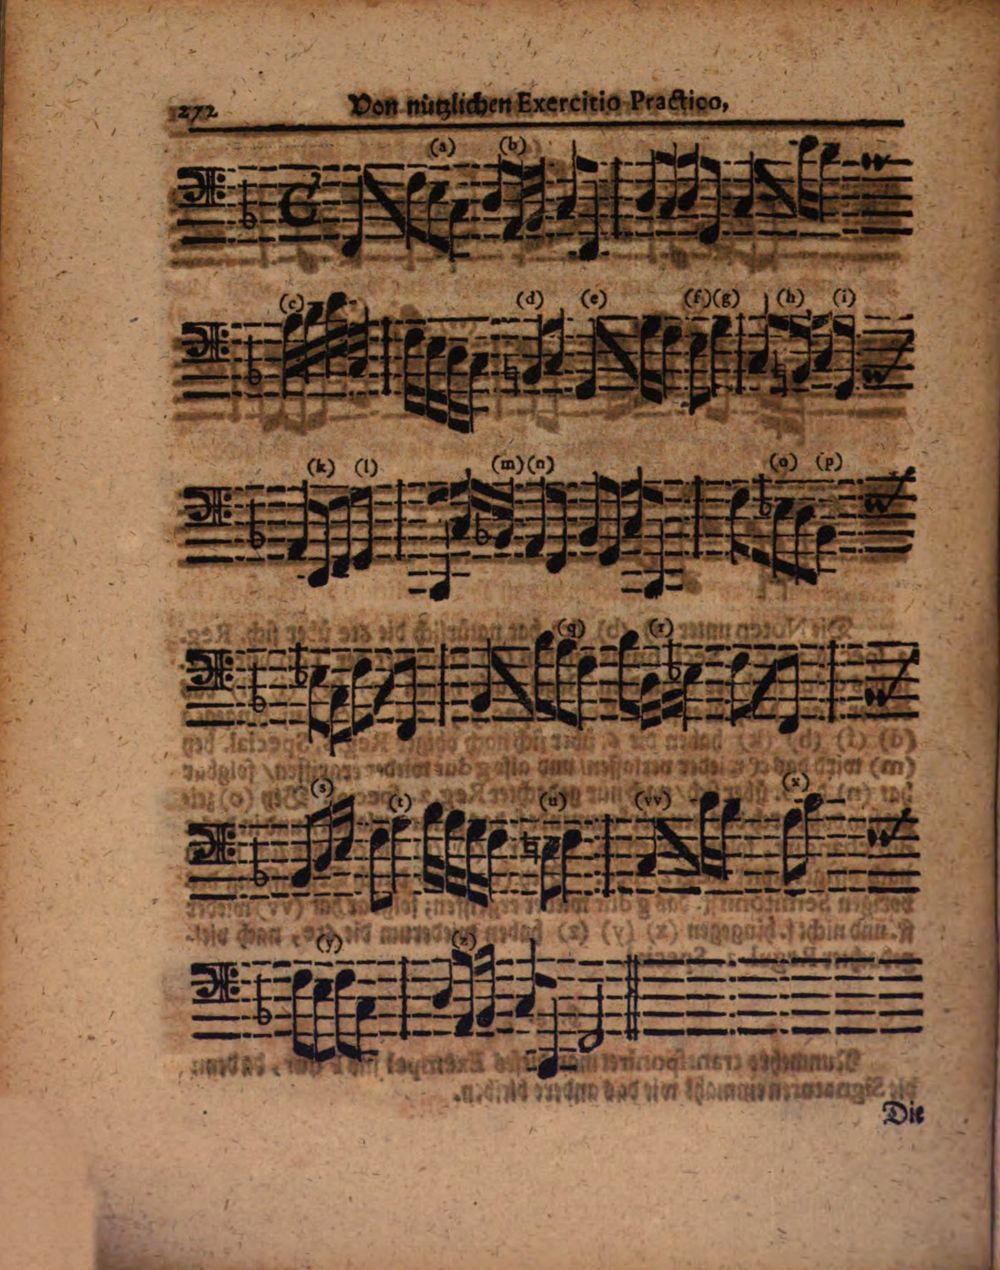 272 Von nützlichen Exercitio Practico,
(a) (b)
(c) (d) (e) (f) (g) (h) (i)
(k) (l) (m) (n) (o) (p)
(q) (r)
(s) (t) (u) (vv) (x)
(y) (z)
Die